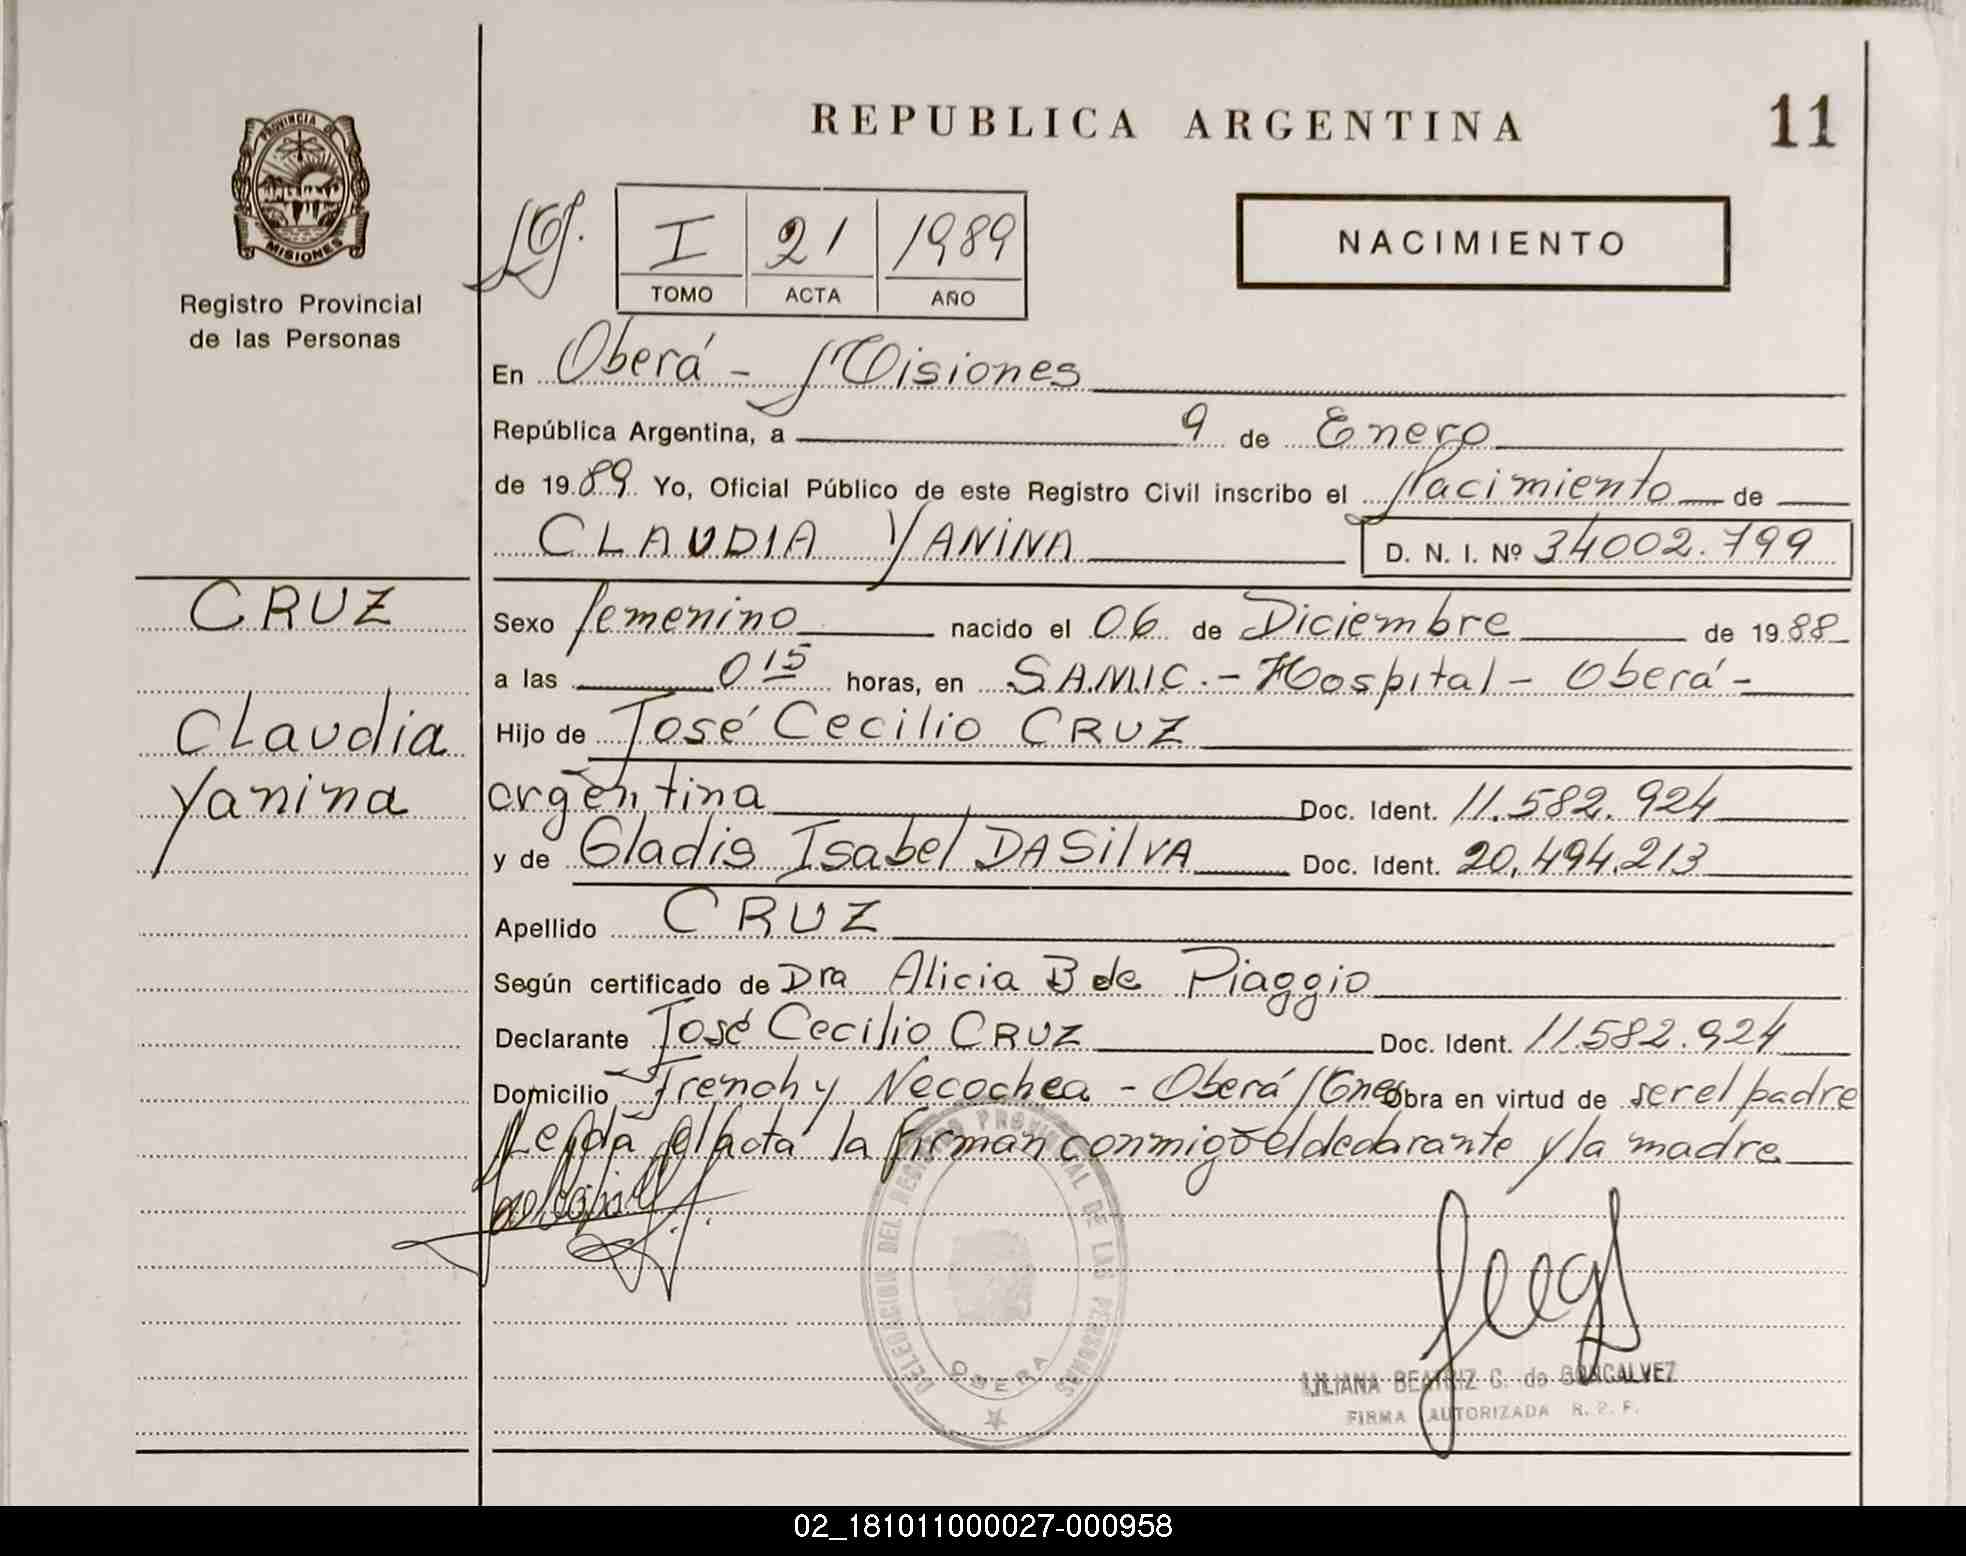 REPUBLICA ARGENTINA
11
PROVINCIA DE
MISIONES
Registro Provincial
de las Personas
I 21 1989
TOMO ACTA AÑO
NACIMIENTO
En Oberá - Misiones
República Argentina, a 9 de Enero
de 1989 Yo, Oficial Público de este Registro Civil inscribo el Nacimiento de
CLAUDIA YANINA D. N. I. Nº 34002.799
CRUZ
Claudia
Yanina
Sexo femenino nacido el 06 de Diciembre de 1988
a las 0 15 horas, en SAMIC. - Hospital - Oberá -
Hijo de José Cecilio CRUZ
argentina Doc. Ident. 11.582.924
y de Gladis Isabel DASilVA Doc. Ident. 20.494.213
Apellido CRUZ
Según certificado de Dra Alicia B de Piaggio
Declarante José Cecilio CRUZ Doc. Ident. 11582.924
Domicilio French y Necochea - Oberá Mnes Obra en virtud de ser el padre
Leída el acta la firman conmigo el declarante y la madre
DELEGACION DEL REGISTRO PROVINCIAL DE LAS PERSONAS
OBERA
LILIANA BEATRIZ G. de GONCALVEZ
FIRMA AUTORIZADA R. P. P.
02_181011000027-000958